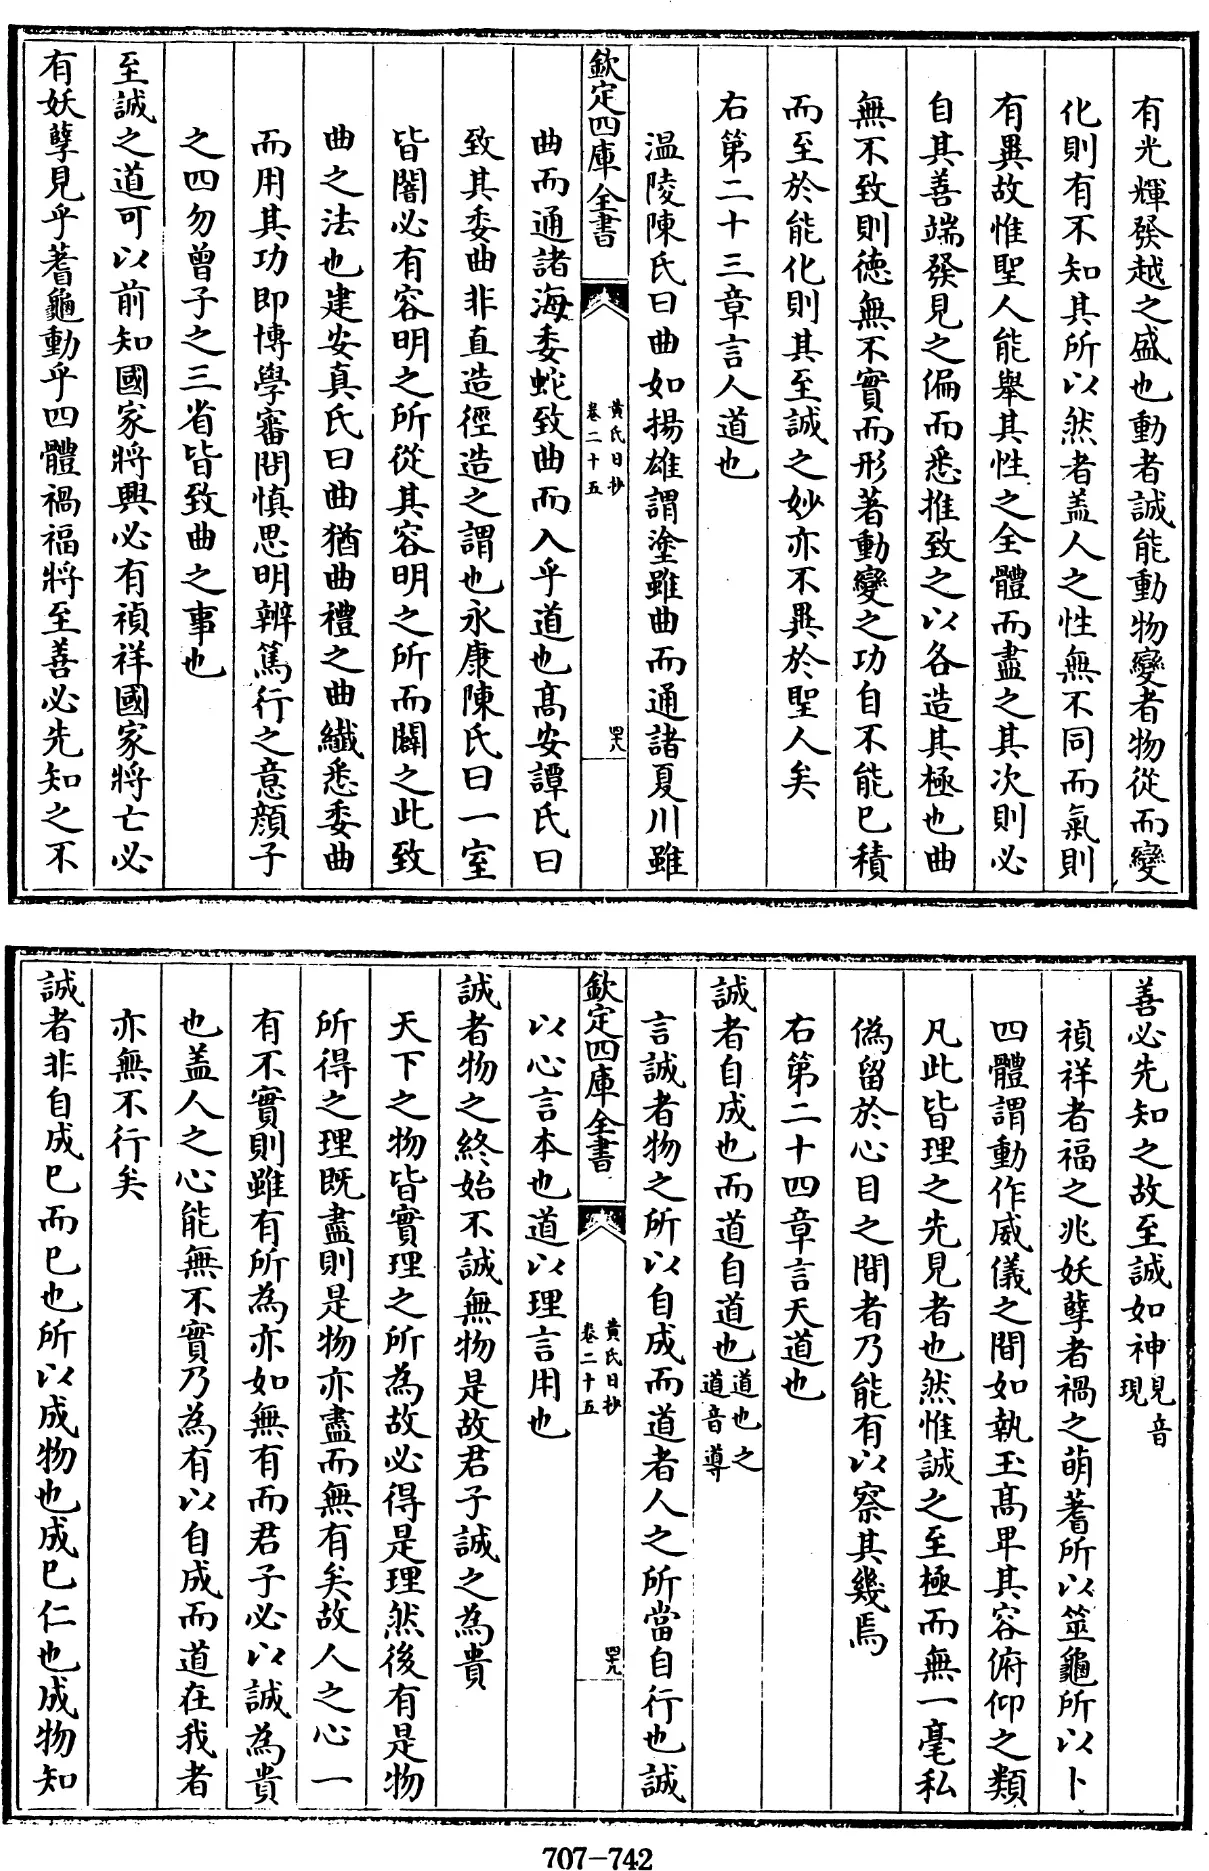 有光輝發越之盛也動者誠能動物變者物從而變
化則有不知其所以然者盖人之性無不同而氣則
有異故惟聖人能舉其性之全體而盡之其次則必
自其善端發見之偏而悉推致之以各造其極也曲
無不致則德無不實而形著動變之功自不能已積
而至於能化則其至誠之妙亦不異於聖人矣
右第二十三章言人道也
温陵陳氏曰曲如揚雄謂塗雖曲而通諸夏川雖
欽定四庫全書
黄氏日抄
卷二十五
四十八
曲而通諸海委蛇致曲而入乎道也髙安譚氏曰
致其委曲非直造徑造之謂也永康陳氏曰一室
皆闇必有容明之所從其容明之所而闢之此致
曲之法也建安真氏曰曲猶曲禮之曲纎悉委曲
而用其功即博學審問慎思明辨篤行之意顔子
之四勿曾子之三省皆致曲之事也
至誠之道可以前知國家將興必有禎祥國家將亡必
有妖孽見乎蓍龜動乎四體禍福將至善必先知之不
善必先知之故至誠如神見音
現
禎祥者福之兆妖孽者禍之萌蓍所以筮龜所以卜
四體謂動作威儀之間如執玉髙卑其容俯仰之類
凡此皆理之先見者也然惟誠之至極而無一毫私
偽留於心目之間者乃能有以察其幾焉
右第二十四章言天道也
誠者自成也而道自道也道也之
道音導
言誠者物之所以自成而道者人之所當自行也誠
欽定四庫全書
黄氏日抄
卷二十五
四十九
以心言本也道以理言用也
誠者物之終始不誠無物是故君子誠之為貴
天下之物皆實理之所為故必得是理然後有是物
所得之理既盡則是物亦盡而無有矣故人之心一
有不實則雖有所為亦如無有而君子必以誠為貴
也盖人之心能無不實乃為有以自成而道在我者
亦無不行矣
誠者非自成已而已也所以成物也成已仁也成物知
707-742